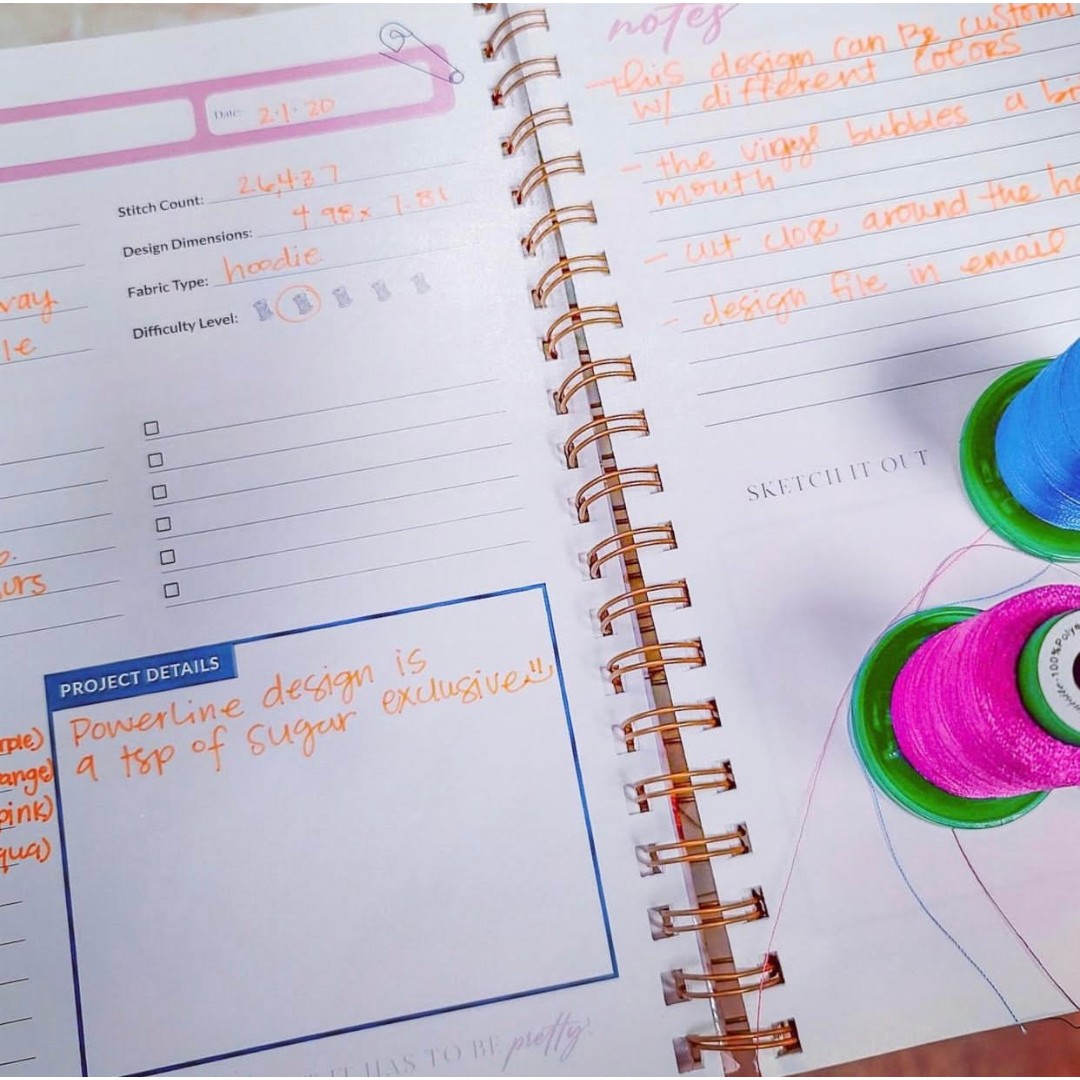 Date: 2.1.20
Stitch Count: 26,437
Design Dimensions: 4.98 x 7.81
Fabric Type: hoodie
Difficulty Level:
PROJECT DETAILS
Powerline design is
a tsp of sugar exclusive
IT HAS TO BE pretty!
notes
- this design can be
w/ different colors
- the vinyl bubbles a
mouth
- cut close around the
- design file in email
SKETCH IT OUT
100% Polye